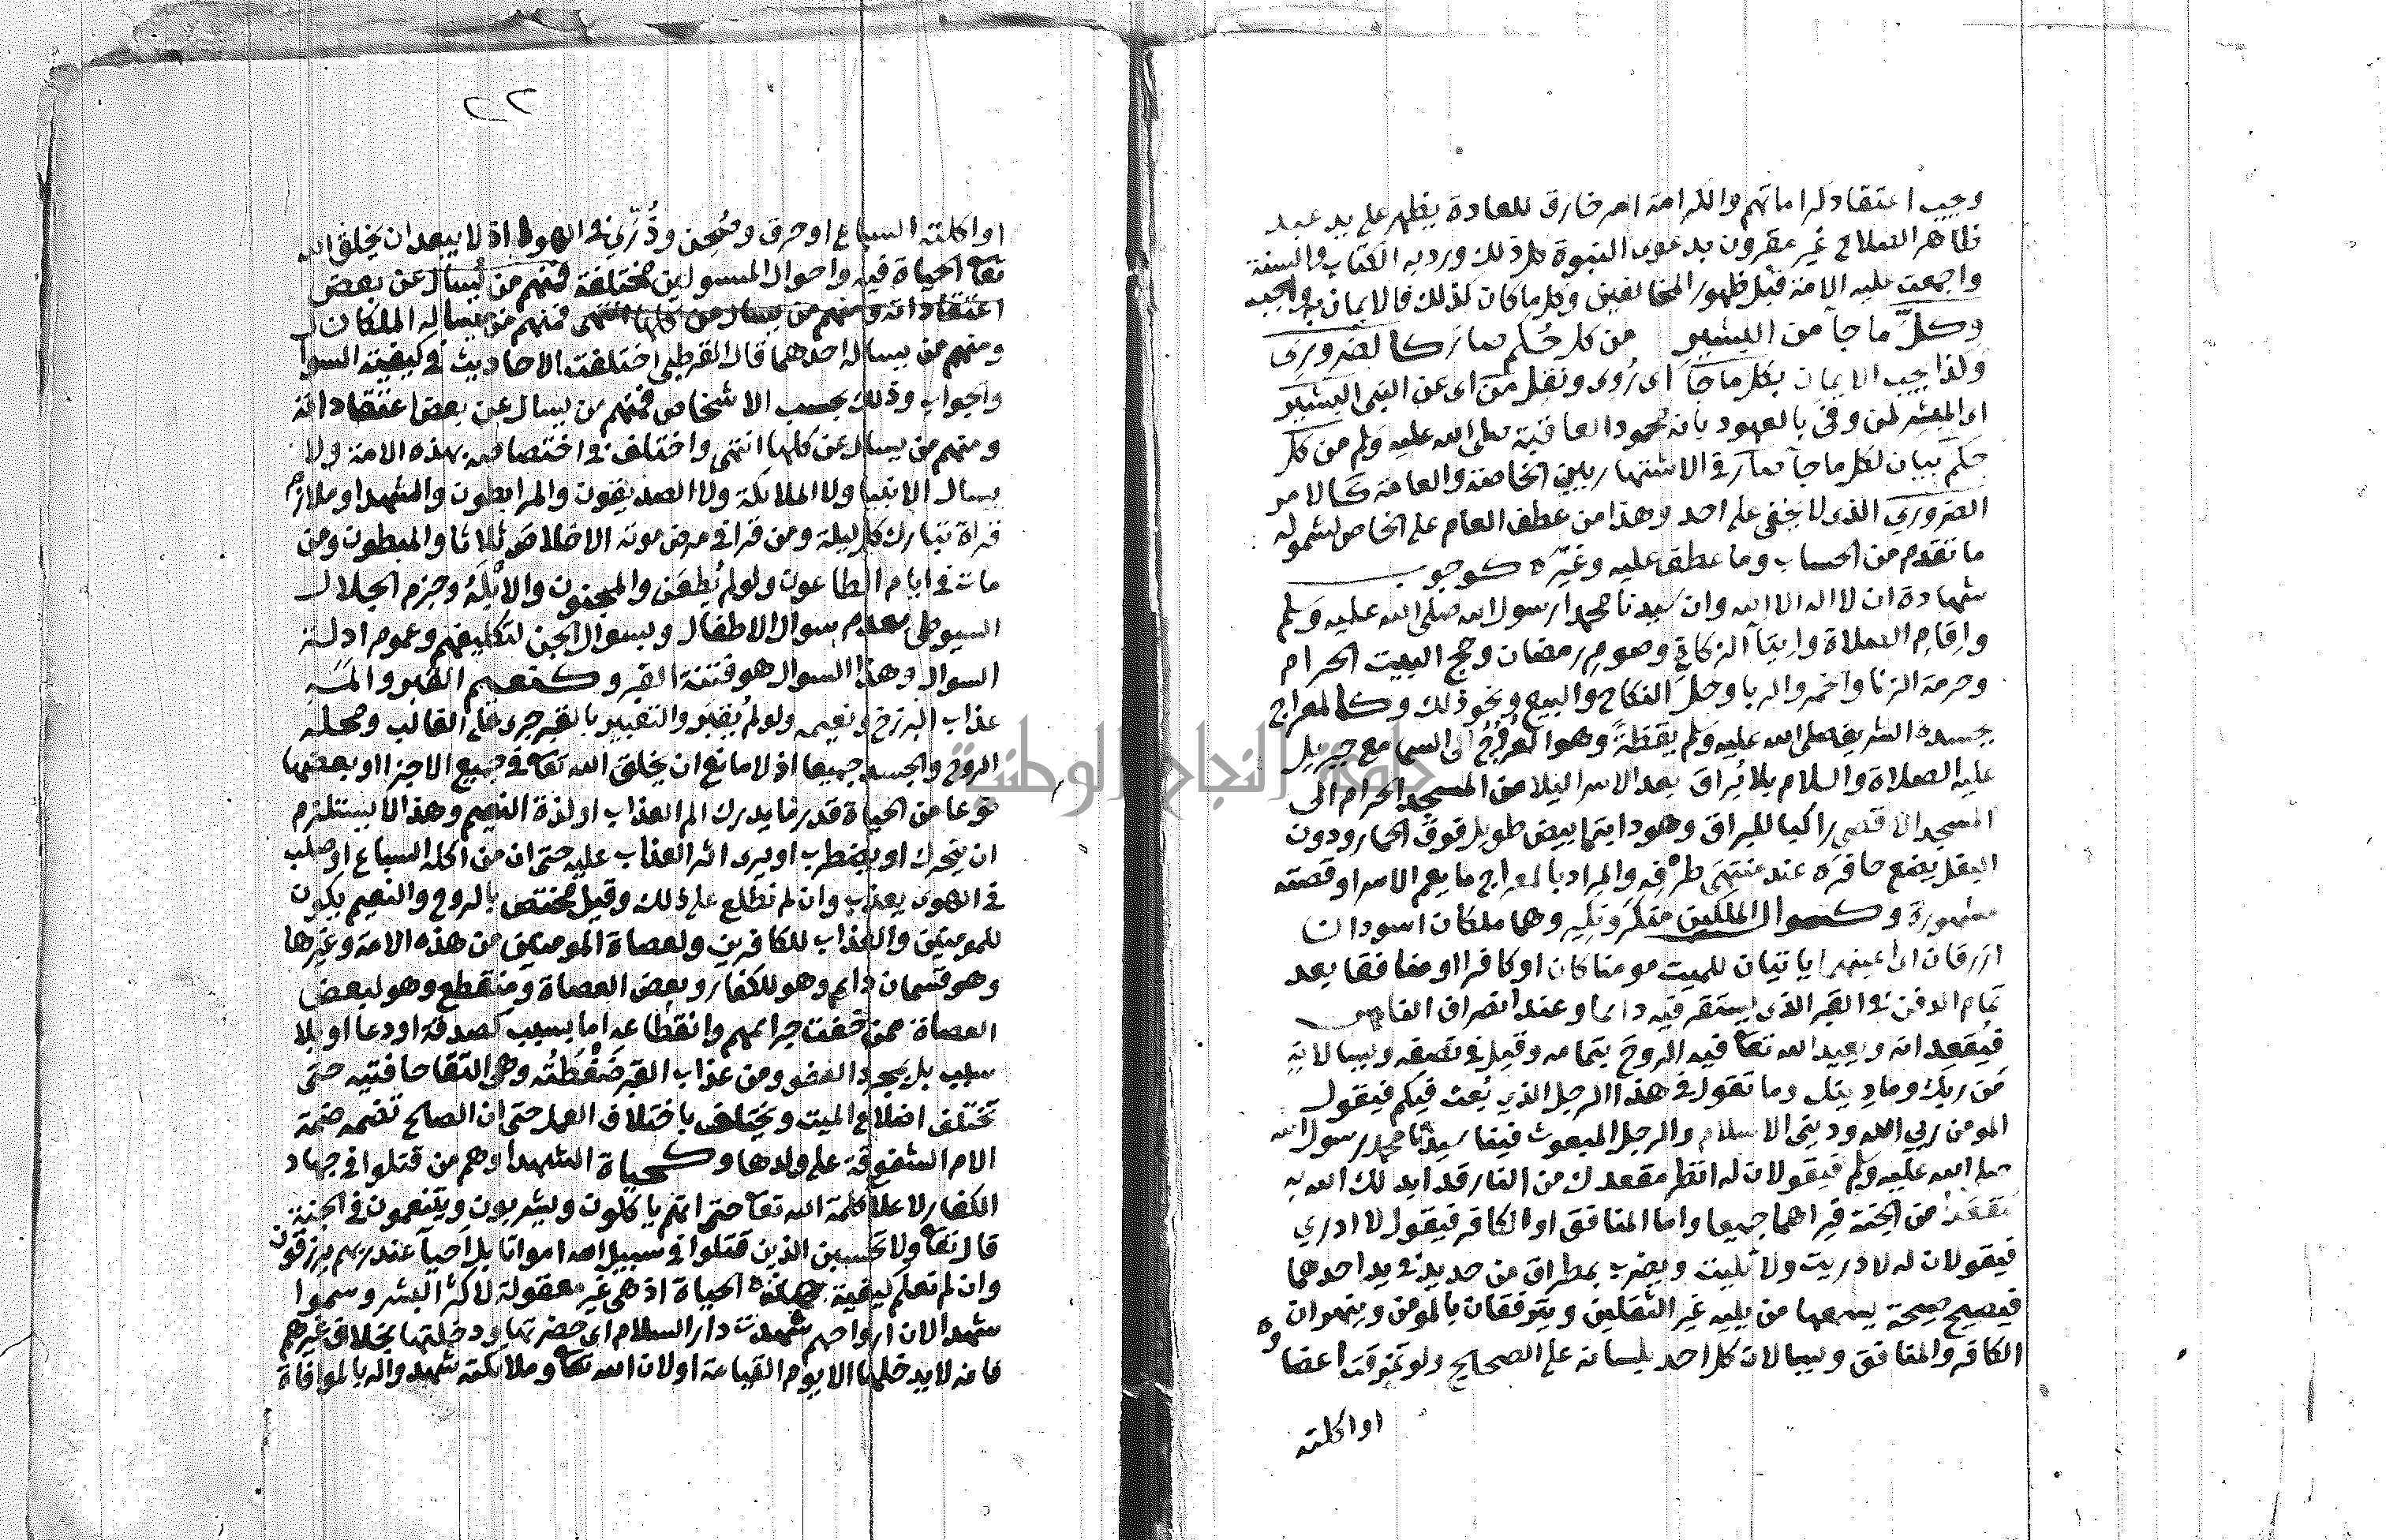 وجب اعتقاد كراماتهم والكرامة امر خارق للعادة يظهر على يد عبد
ظاهر الصلاح غير مقرون بدعوى النبوة كل ذلك ورد به الكتاب والسنة
واجمعت عليه الامة قبل ظهور المخالفين وكل ما كان كذلك فالايمان به واجب
وكل ما جآ من البشير من كل حكم صار كالضروري
ولذا يجب الايمان بكل ما جآ اى رُوى ونقل من اى عن النبى البشير
اى المبشر لمن وفى بالعهود بانه محمود العاقبة صلى الله عليه وسلم من كل
حكم بيان لكل ما جآ صار فى الاشتهار بين الخاصة والعامة كالامر
الضروري الذى لا يخفى على احد وهذا من عطف العام على الخاص لشموله
ما تقدم من الحساب وما عطف عليه وغيره كوجوب
شهادة ان لا اله الا الله وان سيدنا محمدا رسول الله صلى الله عليه وسلم
واِقامِ الصلاة وايتآ الزكاةِ وصومِ رمضان وحج البيت الحرام
وحرمة الزنا والخمر والربا وحلّ النكاح والبيع ونحو ذلك وكالمعراج
بجسده الشريف صلى الله عليه وسلم يقظةً وهو العُرُوُج الى السما مع جبريل
عليه الصلاة والسلام بلا بُراق بعد الاسرا ليلا من المسجد الحرام الى
المسجد الاقصى راكبا للبراق وهو دابة ابيض طويل فوق الحمار ودون
البغل يضع حافره عند منتهَى طرْفِه والمراد بالمعراج ما يعم الاسرا وقصته
مشهورة وكسوال الملكين منكر ونكير وهما ملكان اسودان
ازرقان اى اعينهما ياتيان للميت مومنا كان او كافرا او منافقا بعد
تمام الدفن فى القبر الذى يستقر فيه دايما وعند انصراف الناس
فيُقعدانه ويعيد الله تعا فيه الروح بتمامه وقيل فى نصفه ويسالانه
مَن ربك وما دينك وما تقول فى هذا الرجل الذي بُعث فيكم فيقول
المومن ربي الله وديني الاسلام والرجل المبعوث فينا سيدنا محمد رسول الله
صلى الله عليه وسلم فيقولان له انظر مقعدك من النار قد ابدلك الله به
مقعدا من الجنة فيراهما جميعا واما المنافق او الكافر فيقول لا ادري
فيقولان له لا دريت ولا تليت ويضرب بمطراق من حديد فى يد احدهما
فيصيح صيحة يسمعها من يليه غير الثقلين ويترفقان بالمومن وينهران
الكافر والمنافق ويسالان كل احد بلسانه على الصحيح ولو تمزقت اعضاوه
او اكلته
٢٢
او اكلته السباع او حرق وسُحِق وذُرّي فى الهوا اذ لا يبعد ان يخلق الله
تعا الحياة فيه واحوال المسولين مختلفة فمنهم من يُسال عن بعض
اعتقاداته ومنهم من يسال عن كلها انتهى فمنهم من يساله الملكان
ومنهم من يساله احدهما قال القرطبى اختلفت الاحاديث فى كيفية السوال
والجواب وذلك بحسب الاشخاص فمنهم من يسال عن بعض اعتقاداته
ومنهم من يسال عن كلها انتهى واختلف فى اختصاصه بهذه الامة ولا
يسال الانبيا ولا الملائكة ولا الصديقون والمرابطون والشهدا وملازم
قراة تبارك كل ليلة ومن قرا فى مرض موته الاخلاص ثلاثا والمبطون ومن
مات فى ايام الطاعون ولو لم يُطعَن والمجنون والابْلَهُ وجزم الجلال
السيوطى بعدم سوال الاطفال وبسوال الجن لتكليفهم وعموم ادلة
السوال وهذا السوال هو فتنة القبر وكنعيم القبر والمراد به
عذاب البرزخ ونعيمه ولو لم يُقبَر والتعبير بالقبر جرى على الغالب ومحله
الروح والجسد جميعا اذ لا مانع ان يخلق الله تعا فى جميع الاجزا او بعضها
نوعا من الحياة قدر ما يدرك الم العذاب او لذة النعيم وهذا لا يستلزم
ان يتحرك او يضطرب او يرى اثر العذاب عليه حتى ان من اكله السباع او صلب
فى الهوى يعذب وان لم نطلع على ذلك وقيل مختص بالروح والنعيم يكون
للمومنين والعذاب للكافرين ولعصاة المومنين من هذه الامة وغيرها
وهو قسمان دايم وهو للكفار وبعض العصاة ومنقطع وهو لبعض
العصاة ممن خفت جرائمهم وانقطاعه اما بسبب كصدقة او دعا او بلا
سبب بل بمجرد العفو ومن عذاب القبر ضَغْطَتُه وهى التقا حافتيه حتى
تختلف اضلاع الميت ويختلف باختلاف العمل حتى ان الصالح تضمه ضمة
الام الشفوقة على ولدها وكحياة الشهدا وهم من قتلوا فى جهاد
الكفار لاعلا كلمة الله تعا حتى انهم ياكلون ويشربون ويتنعمون فى الجنة
قال تعا ولا تحسبن الذين قتلوا فى سبيل الله امواتا بل احيآ عند ربهم يرزقون
وان لم تعلم كيفية هذه الحياة اذ هى غير معقولة لاكثر البشر وسموا
شهدا لان ارواحهم شهدت دار السلام اى حضرتها ودخلتها بخلاف غيرهم
فانه لا يدخلها الا يوم القيامة او لان الله تعا وملائكته شهدوا له بالموافاة
جامعة النجاح الوطنية